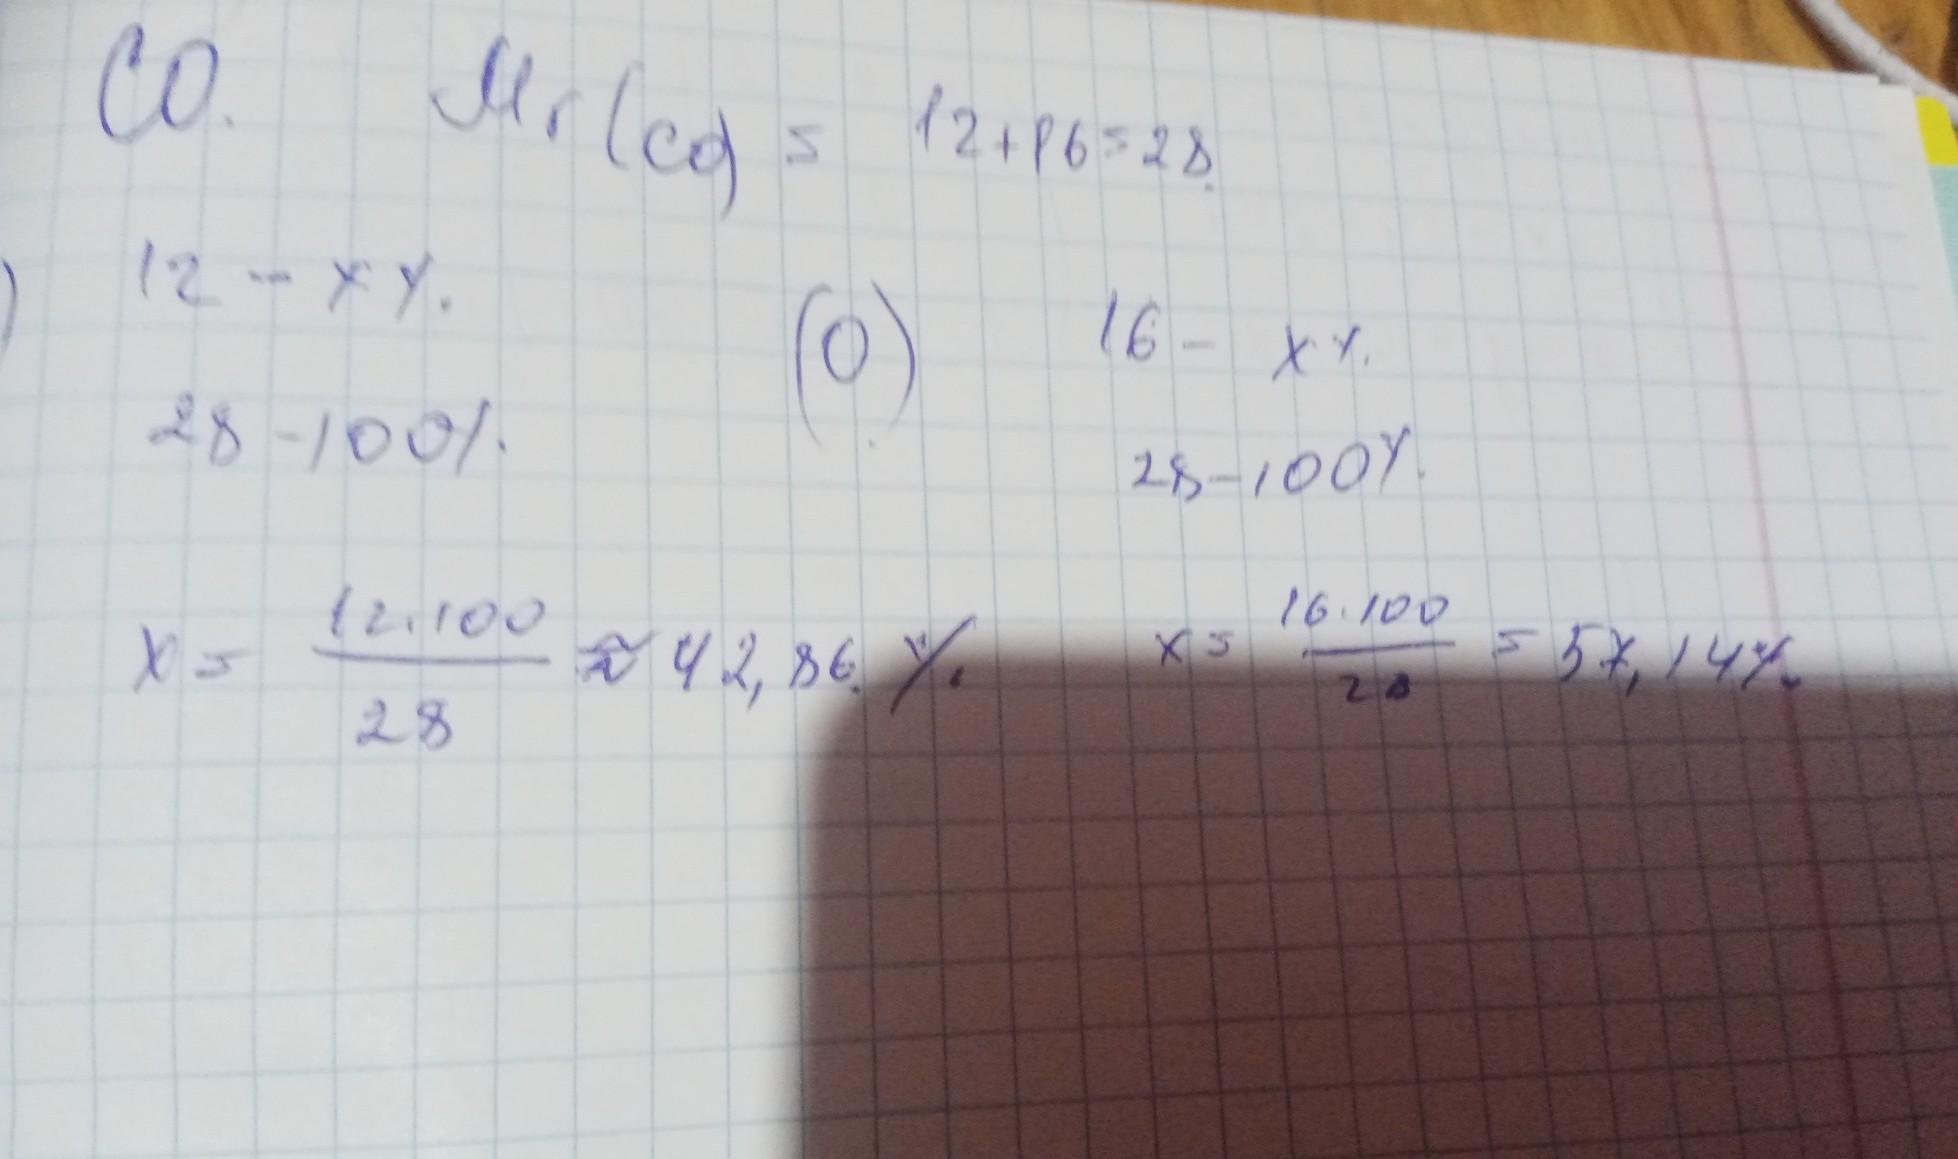 CO. Mr(CO) = 12+16=28.
) 12 - x%.
28-100%.
x = 12·100/28 ≈ 42,86.%.
(O) 16 - x%.
28-100%.
x = 16·100/28 = 57,14%.